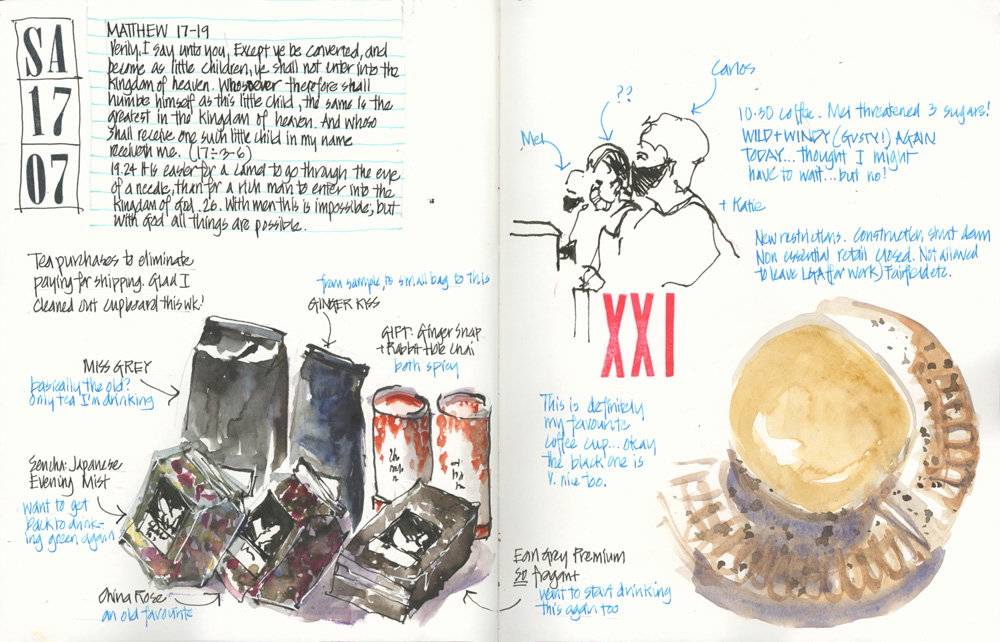 SA
17
07
MATTHEW 17-19
Verily, I say unto you, Except ye be converted, and
become as little children, ye shall not enter into the
kingdom of heaven. Whosoever therefore shall
humble himself as this little child, the same is the
greatest in the kingdom of heaven. And whoso
shall receive one such little child in my name
receiveth me. (17:3-6)
19.24 It is easier for a camel to go through the eye
of a needle, than for a rich man to enter into the
kingdom of God. 26. With men this is impossible; but
with God all things are possible.
Tea purchases to eliminate
paying for shipping. Glad I
cleaned out cupboard this wk!
from sample, to small bag to this
GINGER KISS
GIFT: Ginger Snap
+ Rabbit Hole Chai
both spicy
MISS GREY
basically the old?
only tea I'm drinking
Sencha: Japanese
Evening Mist
want to get
back to drink-
ing green again
China Rose
an old favourite
Earl Grey Premium
SO fragant
want to start drinking
this again too
Carlos
??
Mel
+ Katie
10:30 coffee. Mel threatened 3 sugars!
WILD + WINDY (GUSTY!) AGAIN
TODAY... thought I might
have to wait... but no!
New restrictions. Construction shut down
Non essential retail closed. Not allowed
to leave LGA (for work) Fairfield etc.
XXI
This is definitely
my favourite
coffee cup... okay
the black one is
v. nice too.